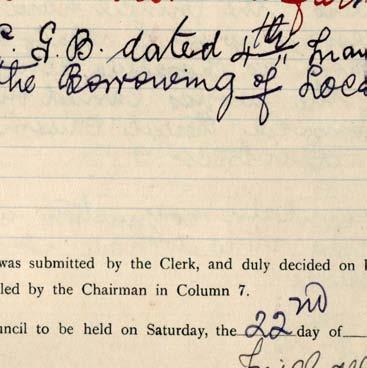 G. B. dated 4th
the Borrowing of Loca
was submitted by the Clerk, and duly decided on
led by the Chairman in Column 7.
uncil to be held on Saturday, the 22nd day of